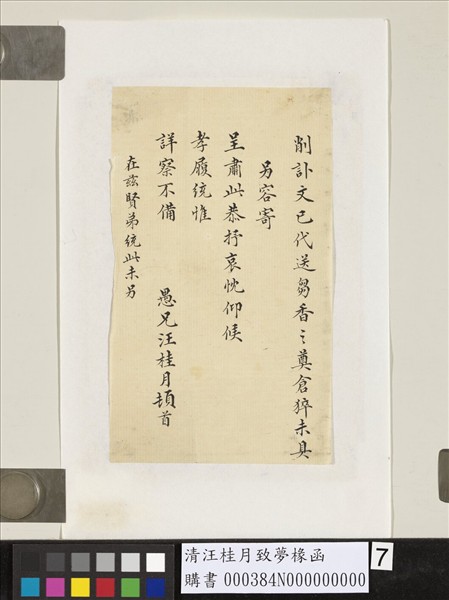 削訃文已代送芻香之奠倉猝未具
另容寄
呈肅此恭抒哀忱仰候
孝履統惟
詳察不備
愚兄汪桂月頓首
在茲賢弟統此未另
清汪桂月致夢橡函
購書 000384N000000000
7